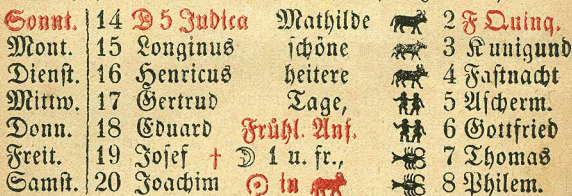 Sonnt. 14 D 5 Judica Mathilde 2 F Quinq.
Mont. 15 Longinus schöne 3 Kunigund
Dienst. 16 Henricus heitere 4 Fastnacht
Mittw. 17 Gertrud Tage, 5 Ascherm.
Donn. 18 Eduard Frühl. Anf. 6 Gottfried
Freit. 19 Josef † ☽ 1 u. fr., 7 Thomas
Samst. 20 Joachim ☉ in 8 Philem.